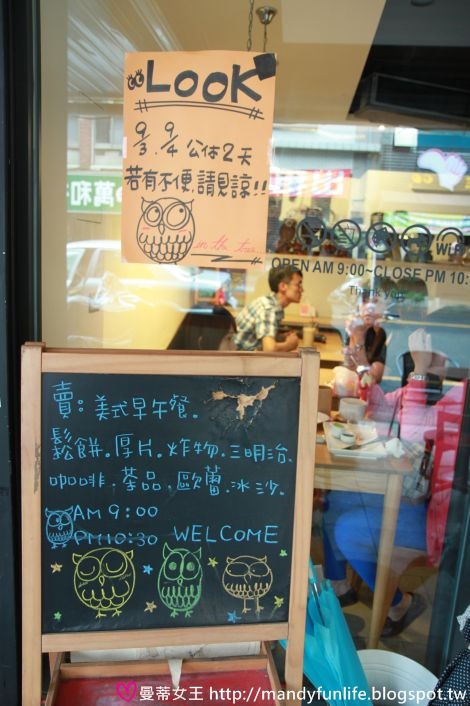 LOOK
9/3. 9/4 公休2天
若有不便,請見諒!!
in the tree
OPEN AM 9:00~CLOSE PM 10:
Thank you
賣:美式早午餐。
鬆餅。厚片。炸物.三明治.
咖啡.茶品.歐蕾.冰沙。
AM 9:00
PM10:30 WELCOME
曼蒂女王 http://mandyfunlife.blogspot.tw